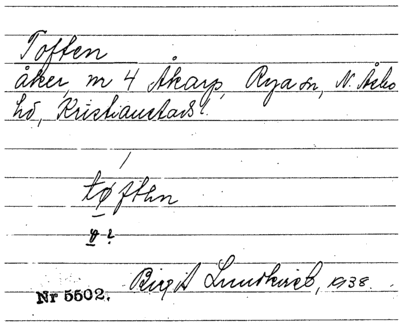 Toften
åker, m 4 Åkarp, Rya sn, N. Åsbo
hd, Kristianstads l.
tøften
ø ?
Birgit Lundkvist, 1938.
Nr 5502.